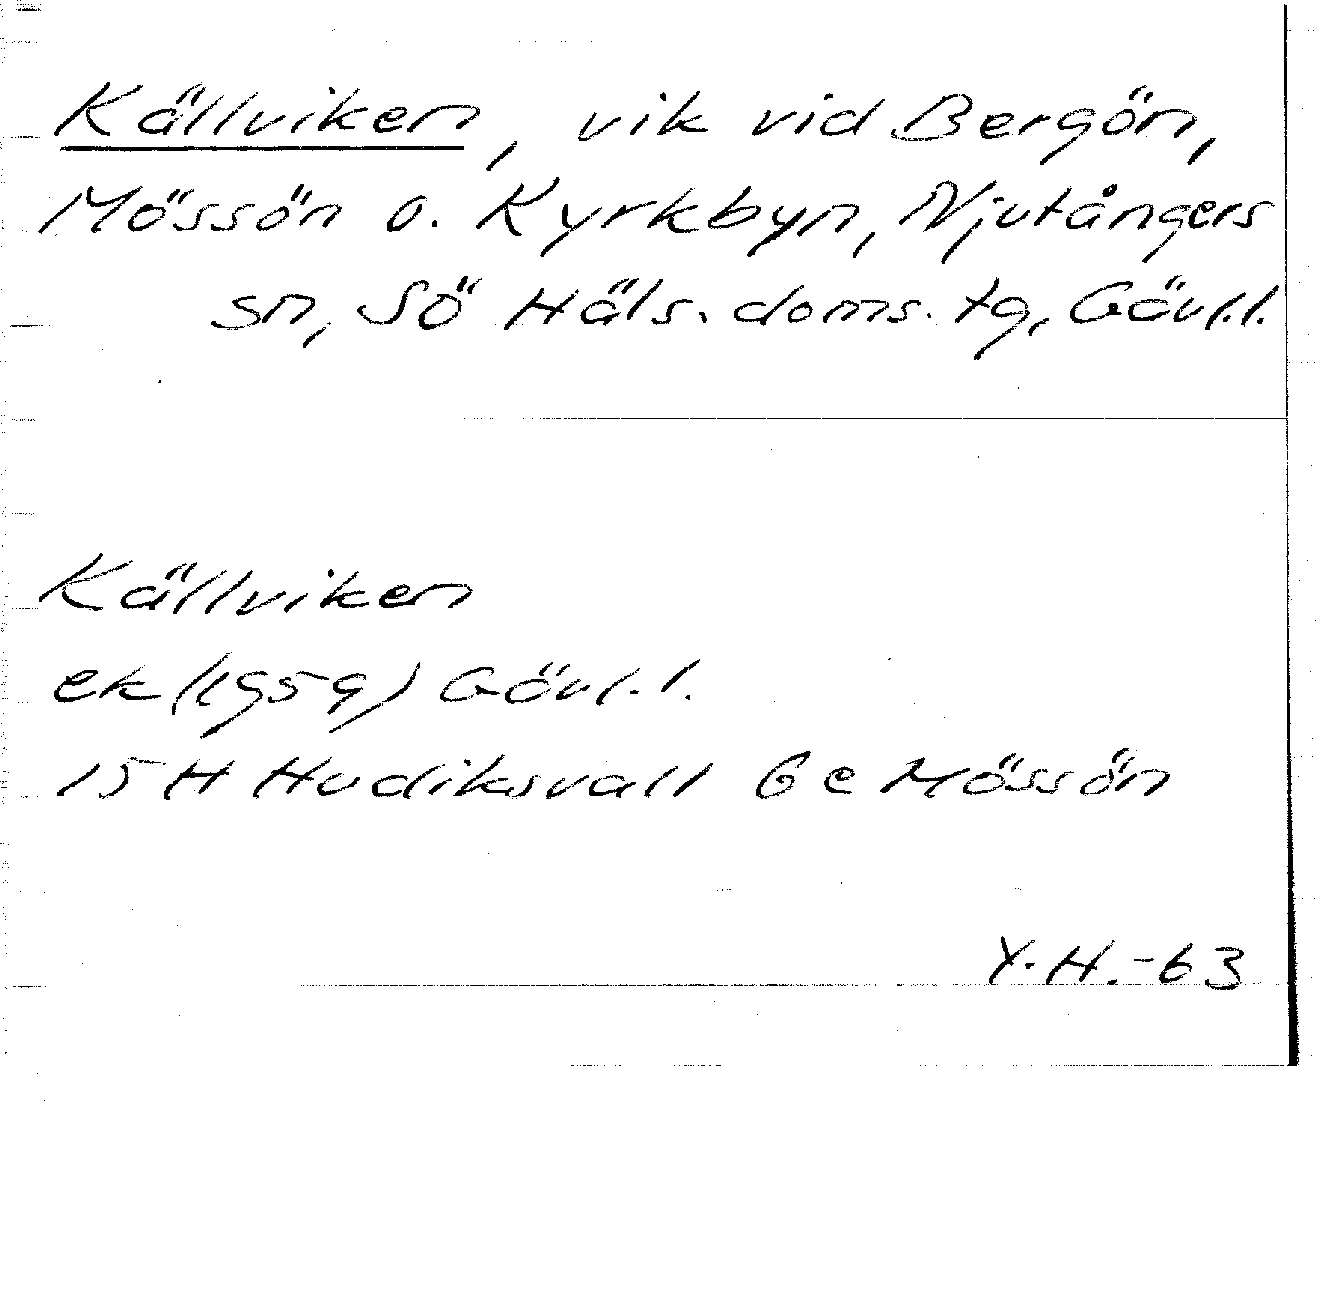 Källviken, vik vid Bergön,
Mössön o. Kyrkbyn, Njutångers
sn, Sö Häls. doms. tg, Gävl.l.
Källviken
ek (1959) Gävl.l.
15 H Hudiksvall 6 e Mössön
Y.H.-63